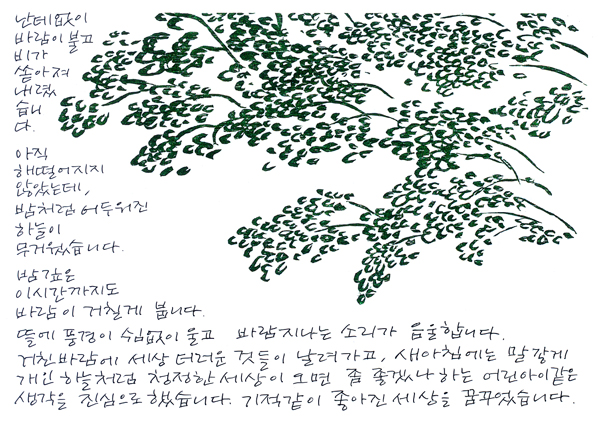 난데없이
바람이 불고
비가
쏟아져
내렸
습니
다.
아직
해떨어지지
않았는데,
밤처럼 어두워진
하늘이
무거웠습니다.
밤 깊은
이시간까지도
바람이 거칠게 붑니다.
뜰에 풍경이 수심없이 울고 바람지나는 소리가 음울합니다.
거친바람에 세상 더러운 것들이 날려가고, 새아침에는 말갛게
개인 하늘처럼 청정한 세상이 오면 좀 좋겠나 하는 어린아이같은
생각을 진심으로 했습니다. 기적같이 좋아진 세상을 꿈꾸었습니다.